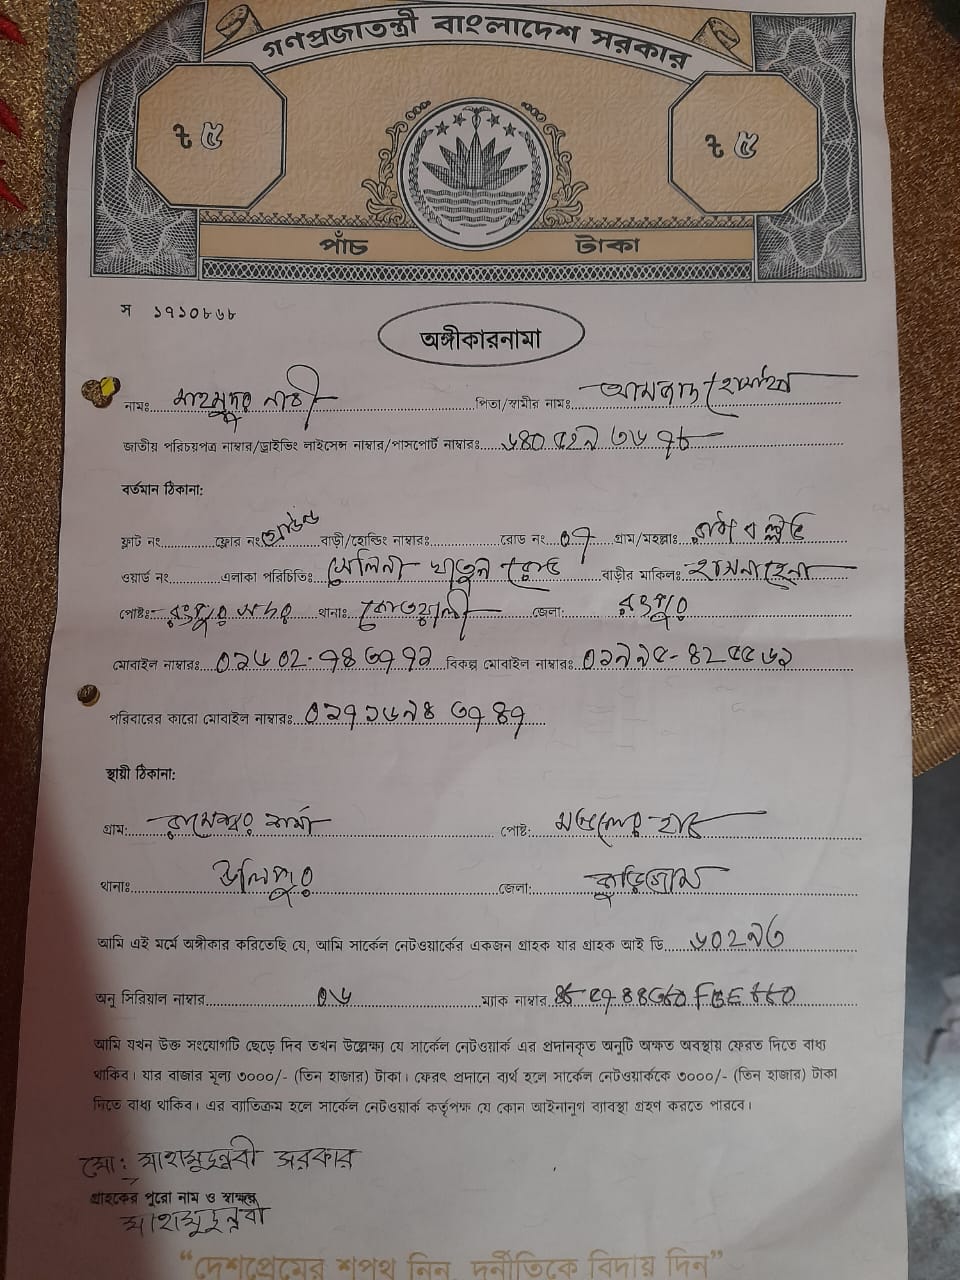 গণপ্রজাতন্ত্রী বাংলাদেশ সরকার
৳ ৫ ৳ ৫
পাঁচ টাকা
স ১৭১০৮৬৮
অঙ্গীকারনামা
নামঃ মাহমুদুর নাবী পিতা/স্বামীর নাম: আমজাদ হোসাইন
জাতীয় পরিচয়পত্র নাম্বার/ড্রাইভিং লাইসেন্স নাম্বার/পাসপোর্ট নাম্বারঃ
বর্তমান ঠিকানা:
ফ্লাট নং ফ্লোর নং বাড়ী/হোল্ডিং নাম্বারঃ রোড নং ০৭ গ্রাম/মহল্লাঃ
ওয়ার্ড নং এলাকা পরিচিতিঃ সেলিনা খাতুন রোড বাড়ীর মালিকঃ হাসনাহেনা
পোষ্টঃ রংপুর সদর থানাঃ কোতয়ালী জেলা: রংপুর
মোবাইল নাম্বারঃ বিকল্প মোবাইল নাম্বারঃ
পরিবারের কারো মোবাইল নাম্বারঃ
স্থায়ী ঠিকানা:
গ্রাম: রামেশ্বর শর্মা পোষ্ট: মন্ডলের হাট
থানাঃ উলিপুর জেলা: কুড়িগ্রাম
আমি এই মর্মে অঙ্গীকার করিতেছি যে, আমি সার্কেল নেটওয়ার্কের একজন গ্রাহক যার গ্রাহক আই ডি
অনু সিরিয়াল নাম্বার ০৬ ম্যাক নাম্বার
আমি যখন উক্ত সংযোগটি ছেড়ে দিব তখন উল্লেক্ষ্য যে সার্কেল নেটওয়ার্ক এর প্রদানকৃত অনুটি অক্ষত অবস্থায় ফেরত দিতে বাধ্য
থাকিব। যার বাজার মূল্য ৩০০০/- (তিন হাজার) টাকা। ফেরৎ প্রদানে ব্যর্থ হলে সার্কেল নেটওয়ার্ককে ৩০০০/- (তিন হাজার) টাকা
দিতে বাধ্য থাকিব। এর ব্যতিক্রম হলে সার্কেল নেটওয়ার্ক কর্তৃপক্ষ যে কোন আইনানুগ ব্যাবস্থা গ্রহণ করতে পারবে।
মো: মাহামুদুন্নবী সরকার
গ্রাহকের পুরো নাম ও স্বাক্ষর
মাহামুদুন্নবী
“দেশপ্রেমের শপথ নিন, দুর্নীতিকে বিদায় দিন”